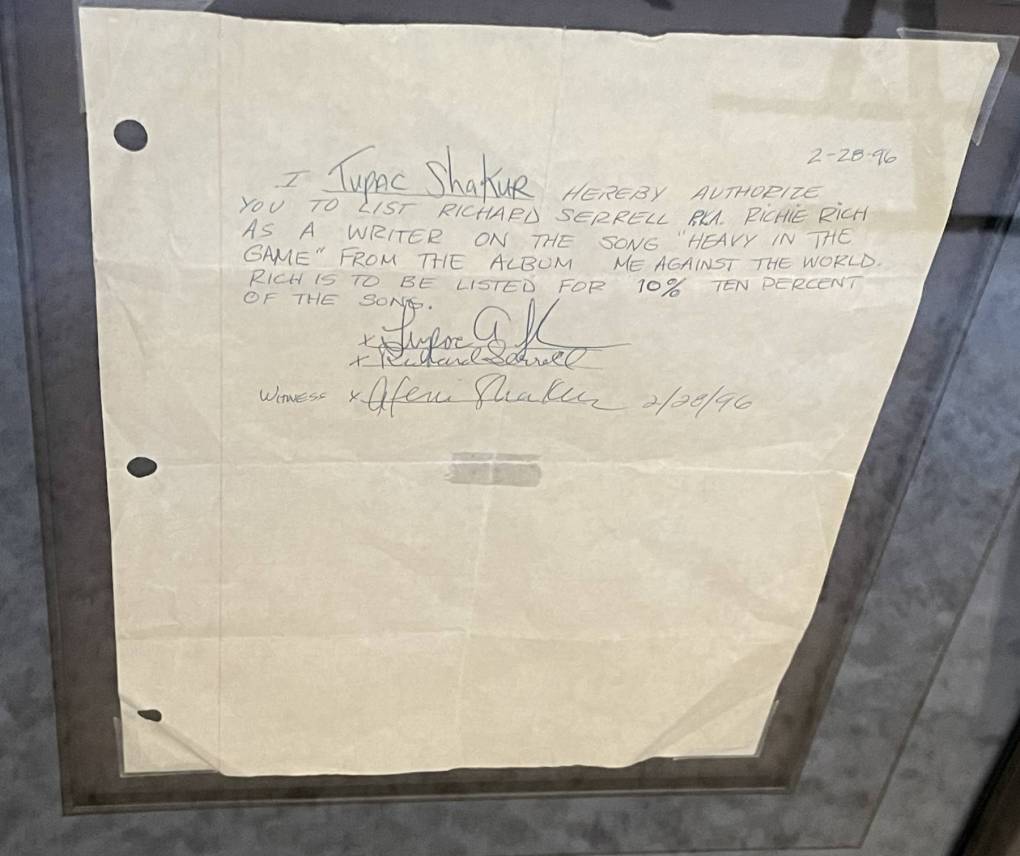 2-28-96
I Tupac Shakur HEREBY AUTHORIZE
YOU TO LIST RICHARD SERRELL P.K.A. RICHIE RICH
AS A WRITER ON THE SONG "HEAVY IN THE
GAME" FROM THE ALBUM ME AGAINST THE WORLD.
RICH IS TO BE LISTED FOR 10% TEN PERCENT
OF THE SONG.
x Tupac A S
x Richard Serrell
WITNESS x Afeni Shakur 2/28/96